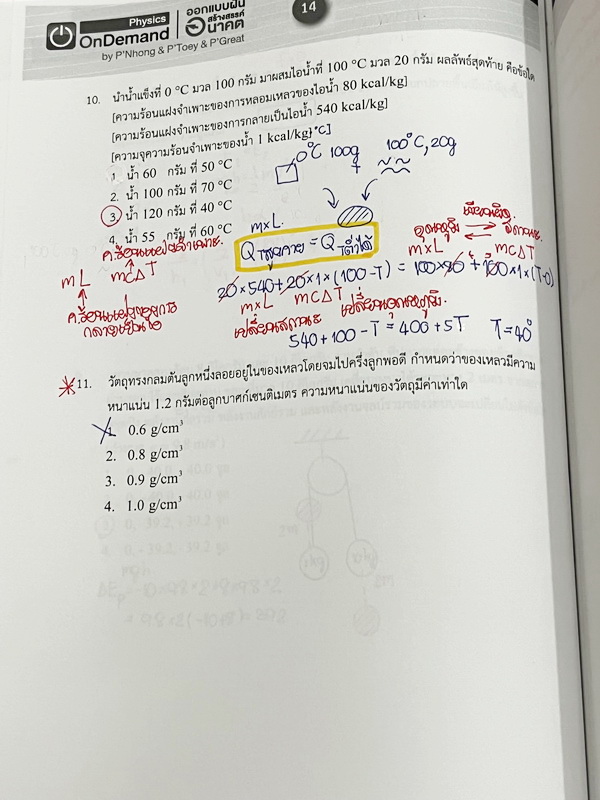 Physics
OnDemand
by P'Nhong & P'Toey & P'Great
ออกแบบฝัน
สร้างสรรค์
อนาคต
14
10. นำน้ำแข็งที่ 0 °C มวล 100 กรัม มาผสมไอน้ำที่ 100 °C มวล 20 กรัม ผลลัพธ์สุดท้าย คือข้อใด
[ความร้อนแฝงจำเพาะของการหลอมเหลวของไอน้ำ 80 kcal/kg]
[ความร้อนแฝงจำเพาะของการกลายเป็นไอน้ำ 540 kcal/kg]
[ความจุความร้อนจำเพาะของน้ำ 1 kcal/kg·°C]
0°C 100g + 100°C, 20g
1. น้ำ 60 กรัม ที่ 50 °C
2. น้ำ 100 กรัม ที่ 70 °C
3. น้ำ 120 กรัม ที่ 40 °C
4. น้ำ 55 กรัม ที่ 60 °C
m×L
Qสูญคาย = Qที่ได้
อุณหภูมิ
สถานะ
m×L
mCΔT
mL
mCΔT
20×540+20×1×(100-T) = 100×80+100×1×(T-0)
m×L mCΔT
เปลี่ยนสถานะ เปลี่ยนอุณหภูมิ
กลายเป็นไอ
540+100-T = 400+5T T=40°
*11. วัตถุทรงกลมตันลูกหนึ่งลอยอยู่ในของเหลวโดยจมไปครึ่งลูกพอดี กำหนดว่าของเหลวมีความ
หนาแน่น 1.2 กรัมต่อลูกบาศก์เซนติเมตร ความหนาแน่นของวัตถุมีค่าเท่าใด
1. 0.6 g/cm³
2. 0.8 g/cm³
3. 0.9 g/cm³
4. 1.0 g/cm³